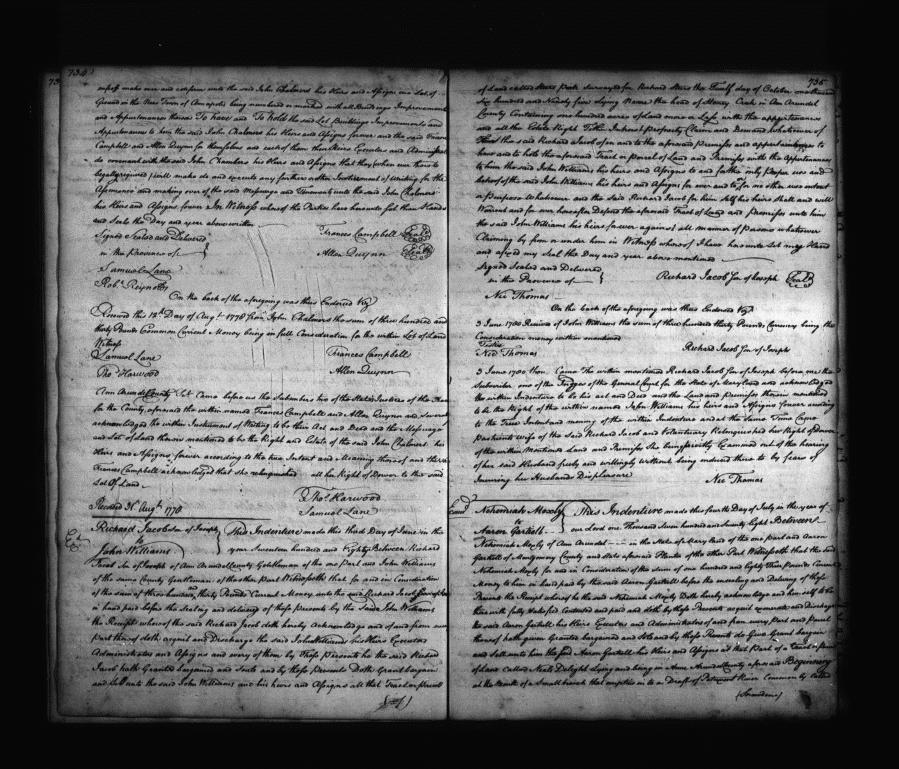 734
myself make over and confirm unto the said John Chalmers his Heirs and Assigns one Lot of
Ground in the New Town of Annapolis being numbered in number with all Buildings Improvements
and Appurtenances thereto To have and To hold the said Lot Buildings Improvements and
Appurtenances to him the said John Chalmers his Heirs and Assigns forever and the said Frances
Campbell and Allen Quynn for themselves and each of them their Heirs Executors and Administrators
do covenant with the said John Chambers his Heirs and Assigns that they when ever there to
legally required will make do and execute any further or other Instrument of writing for the
Assurance and making over of the said Messuage and Tenements unto the said John Chalmers
his Heirs and Assigns forever In Witness whereof the Parties have hereunto set their Hands
and Seals the Day and year above written
Signed Sealed and Delivered
in the presence of
Frances Campbell Seal
Allen Quynn Seal
Samuel Lane
Robt. Reynolds
On the back of the aforegoing was thus Endorsed Viz
Received this 12th Day of Augt. 1778 from John Chalmers the sum of three hundred and
thirty Pounds Common Current Money being in full Consideration for the within Lot of Land
Witness
Samuel Lane
Thos. Harwood
Frances Campbell
Allen Quynn
Ann Arundel County Sct Came before us the Subscribers two of the States Justices of the Peace
for the County aforesaid the within named Frances Campbell and Allen Quynn and severally
acknowledged the within Instrument of Writing to be their Act and Deed and the Messuage
and Lot of Land therein mentioned to be the Right and Estate of the said John Chalmers his
Heirs and Assigns forever according to the true Intent and Meaning thereof and the said
Frances Campbell acknowledged that she relinquished all her Right of Dower to the said
Lot of Land
Thos. Harwood
Samuel Lane
Received 31 Augt. 1778
Richard Jacob Son of Joseph
to
John Williams
This Indenture made this third Day of June in the
year Seventeen hundred and Eighty Between Richard
Jacob Son of Joseph of Ann Arundel County Gentleman of the one Part and John Williams
of the same County Gentleman of the other Part Witnesseth that for and in Consideration
of the sum of three hundred thirty Pounds Current Money unto the said Richard Jacob Son of Joseph
in hand paid before the Sealing and delivery of these presents by the Said John Williams
the Receipt whereof the said Richard Jacob doth hereby Acknowledge and of and from every
part thereof doth acquit and Discharge the said John Williams his Heirs Executors
Administrators and Assigns and every of them by These Presents he the said Richard
Jacob hath Granted bargained and Sold and by these Presents Doth Grant bargain
and Sell unto the said John Williams and his heirs and Assigns all that Tract or parcel
735
of Land called Steers Park surveyed for Richard Steers the twelfth day of October
six hundred and Ninety five Lying Near the head of Money Creek in Ann Arundel
County Containing one hundred acres of Land more or Less with the appurtenances
and all the Estate Right Title Interest Property Claim and Demand whatsoever of
him the said Richard Jacob of in and to the aforesaid Premises and appurtenances to
have and to hold the aforesaid Tract or Parcel of Land and Premises with the Appurtenances
to him the said John Williams his heirs and Assigns to and for the only Proper use and
behoof of the said John Williams his heirs and Assigns for ever and to for no other use intent
or Purpose Whatsoever and the Said Richard Jacob for him self his heirs Shall and will
Warrant and for ever hereafter Defend the aforesaid Tract of Land and premises unto him
the said John Williams his heirs forever against all manner of Persons whatsoever
Claiming by from or under him in Witness whereof I have hereunto Set my Hand
and affixed my Seal the Day and year above mentioned
Signed Sealed and Delivered
in the Presence of
Richard Jacob Son of Joseph Seal
Nic Thomas
On the back of the aforegoing was thus Endorsed Viz
3 June 1780 Received of John Williams the sum of three hundred thirty Pounds Currency being the
Consideration money within mentioned
Teste
Nic Thomas
Richard Jacob Son of Joseph
3 June 1780 then Came The within mentioned Richard Jacob Son of Joseph before me the
Subscriber one of the Judges of the General Court for the State of Maryland and acknowledged
the within Indenture to be his act and Deed and the Land and Premises therein mentioned
to be the Right of the within named John Williams his heirs and Assigns forever according
to the True Intent and meaning of the within Indenture and at the Same Time Came
wife of the Said Richard Jacob and Voluntarily Relinquished her Right of Dower
of the within Mentioned Land and Premises She being privily Examined out of the hearing
of her said Husband freely and willingly without being induced there to by fears of
Incurring her Husbands Displeasure
Nic Thomas
Nehemiah Moxly
to
Aaron Gartrell
This Indenture made this fourth Day of July in the year of
our Lord one Thousand Seven hundred and Seventy Eight Between
Nehemiah Moxly of Ann Arundel in the State of Maryland of the one part and Aaron
Gartrell of Montgomery County and State aforesaid Planter of the other Part Witnesseth that the said
Nehemiah Moxly for and in Consideration of the Sum of one hundred and Eighty Three Pounds Current
Money to him in hand paid by the said Aaron Gartrell before the ensealing and Delivery of these
Presents the Receipt whereof he the said Nehemiah Moxly Doth hereby acknowledge and him self to be
there with fully Satisfied Contented and paid and doth by these Presents acquit exonerate and Discharge
the said Aaron Gartrell his Heirs Executors and Administrators of and from every Part and parcel
thereof hath given Granted bargained and Sold and by these Presents do Give Grant bargain
and Sell unto him the said Aaron Gartrell his Heirs and Assigns all that Part of a Tract or parcel
of Land Called New Delight Lying and being in Anne Arundel County aforesaid Beginning
at the mouth of a Small branch that empties in to a Draft of Patuxent River Common by Called